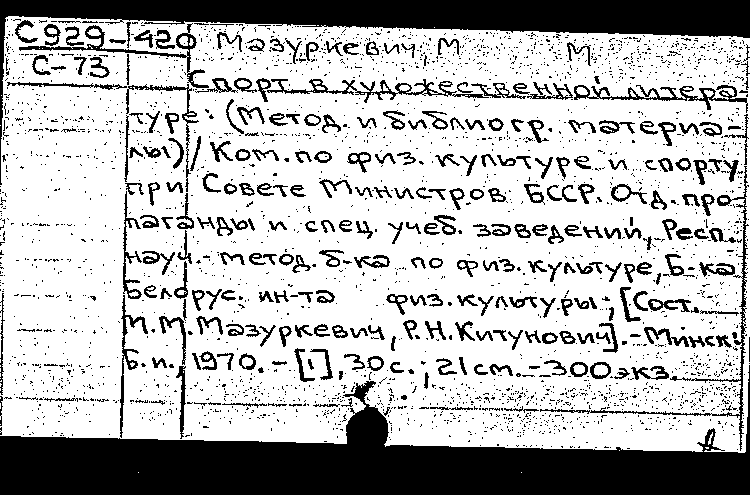 С929-420 Мазуркевич, М М
С-73
Спорт в художественной литера-
туре: (Метод. и библиогр. материа-
лы) / Ком. по физ. культуре и спорту
при Совете Министров БССР. Отд. про-
паганды и спец. учеб. заведений, Респ.
науч.-метод. б-ка по физ. культуре, Б-ка
Белорус. ин-та физ. культуры; [Сост.
М.М. Мазуркевич, Р.Н. Китунович]. - Минск:
Б.и., 1970. - [1], 30 с.; 21 см. - 300 экз.